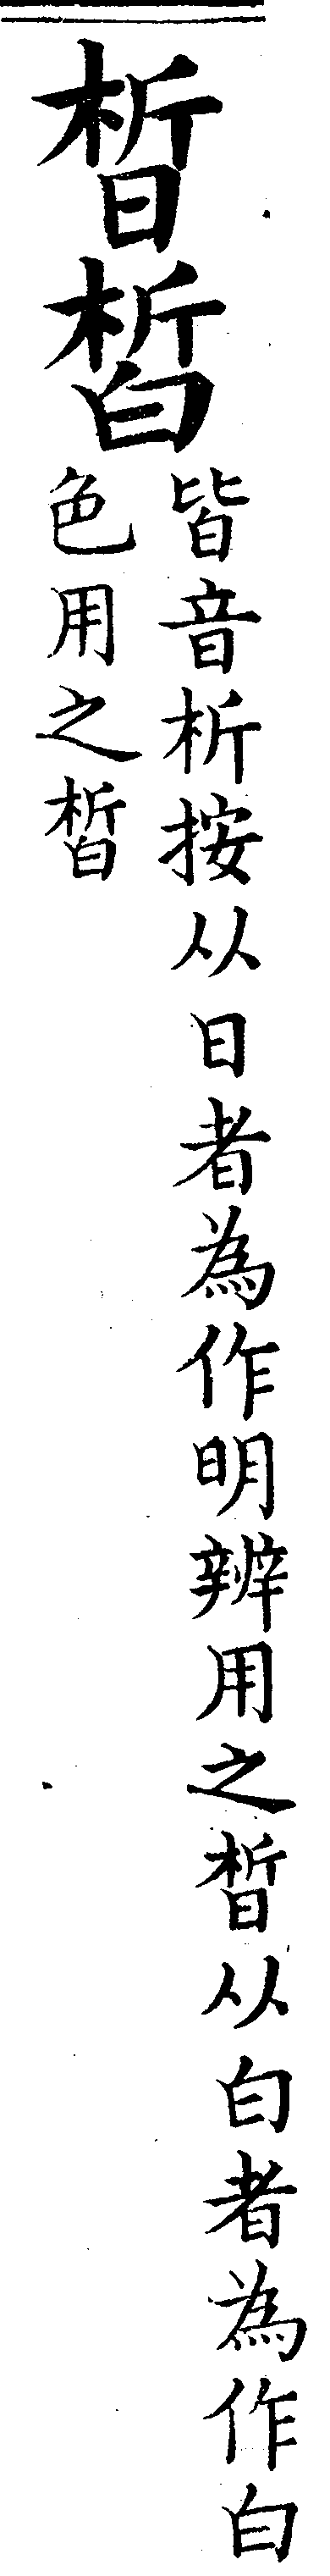 晳皙
皆音析按从日者為作明辨用之晳从白者為作白
色用之皙